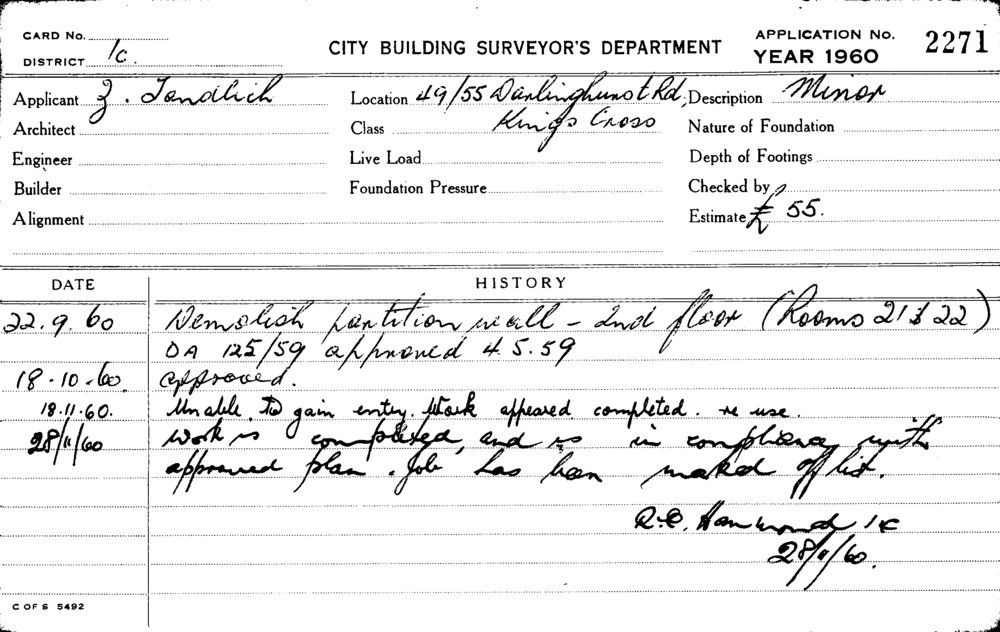 CARD No.
DISTRICT 1c.
CITY BUILDING SURVEYOR'S DEPARTMENT
APPLICATION No. 2271
YEAR 1960
Applicant Z. Tandlich Location 49/55 Darlinghurst Rd, Description Minor
Architect Class Kings Cross Nature of Foundation
Engineer Live Load Depth of Footings
Builder Foundation Pressure Checked by
Alignment Estimate £ 55.
DATE HISTORY
22.9.60 Demolish partition wall - 2nd floor (Rooms 21 & 22)
DA 125/59 approved 4.5.59
18-10-60. approved.
18.11.60. Unable to gain entry. Work appeared completed. re use.
28/11/60 Work is completed, and is in compliance with
approved plan. Job has been marked off list.
R.C. Hammond 1c
28/11/60.
C OF S 5492